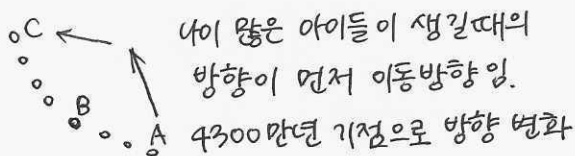 C
나이 많은 아이들이 생길때의
방향이 먼저 이동방향임.
B
A
4300만년 기점으로 방향 변화